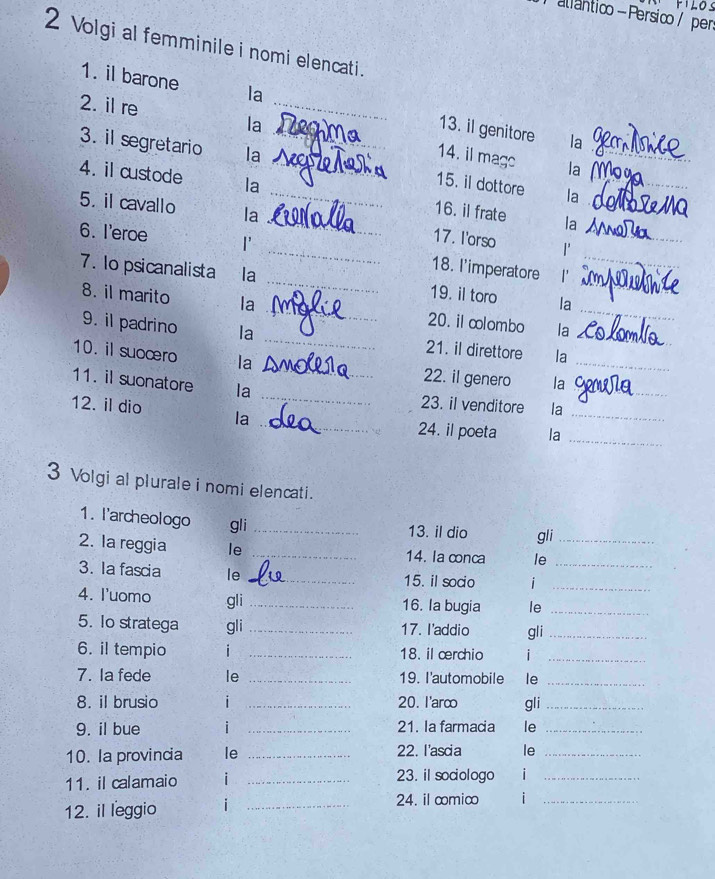 atlantico - Persico / pers
2 Volgi al femminile i nomi elencati.
1. il barone la
2. il re la Regina
3. il segretario la segretaria
4. il custode la
5. il cavallo la cavalla
6. l'eroe l'
7. lo psicanalista la
8. il marito la moglie
9. il padrino la
10. il suocero la suocera
11. il suonatore la
12. il dio la dea
13. il genitore la genitrice
14. il mago la Maga
15. il dottore la dottoressa
16. il frate la suora
17. l'orso l'
18. l'imperatore l' imperatrice
19. il toro la
20. il colombo la colomba
21. il direttore la
22. il genero la genera
23. il venditore la
24. il poeta la
3 Volgi al plurale i nomi elencati.
1. l'archeologo gli
2. la reggia le
3. la fascia le
4. l'uomo gli
5. lo stratega gli
6. il tempio i
7. la fede le
8. il brusio i
9. il bue i
10. la provincia le
11. il calamaio i
12. il leggio i
13. il dio gli
14. la conca le
15. il socio i
16. la bugia le
17. l'addio gli
18. il cerchio i
19. l'automobile le
20. l'arco gli
21. la farmacia le
22. l'ascia le
23. il sociologo i
24. il comico i